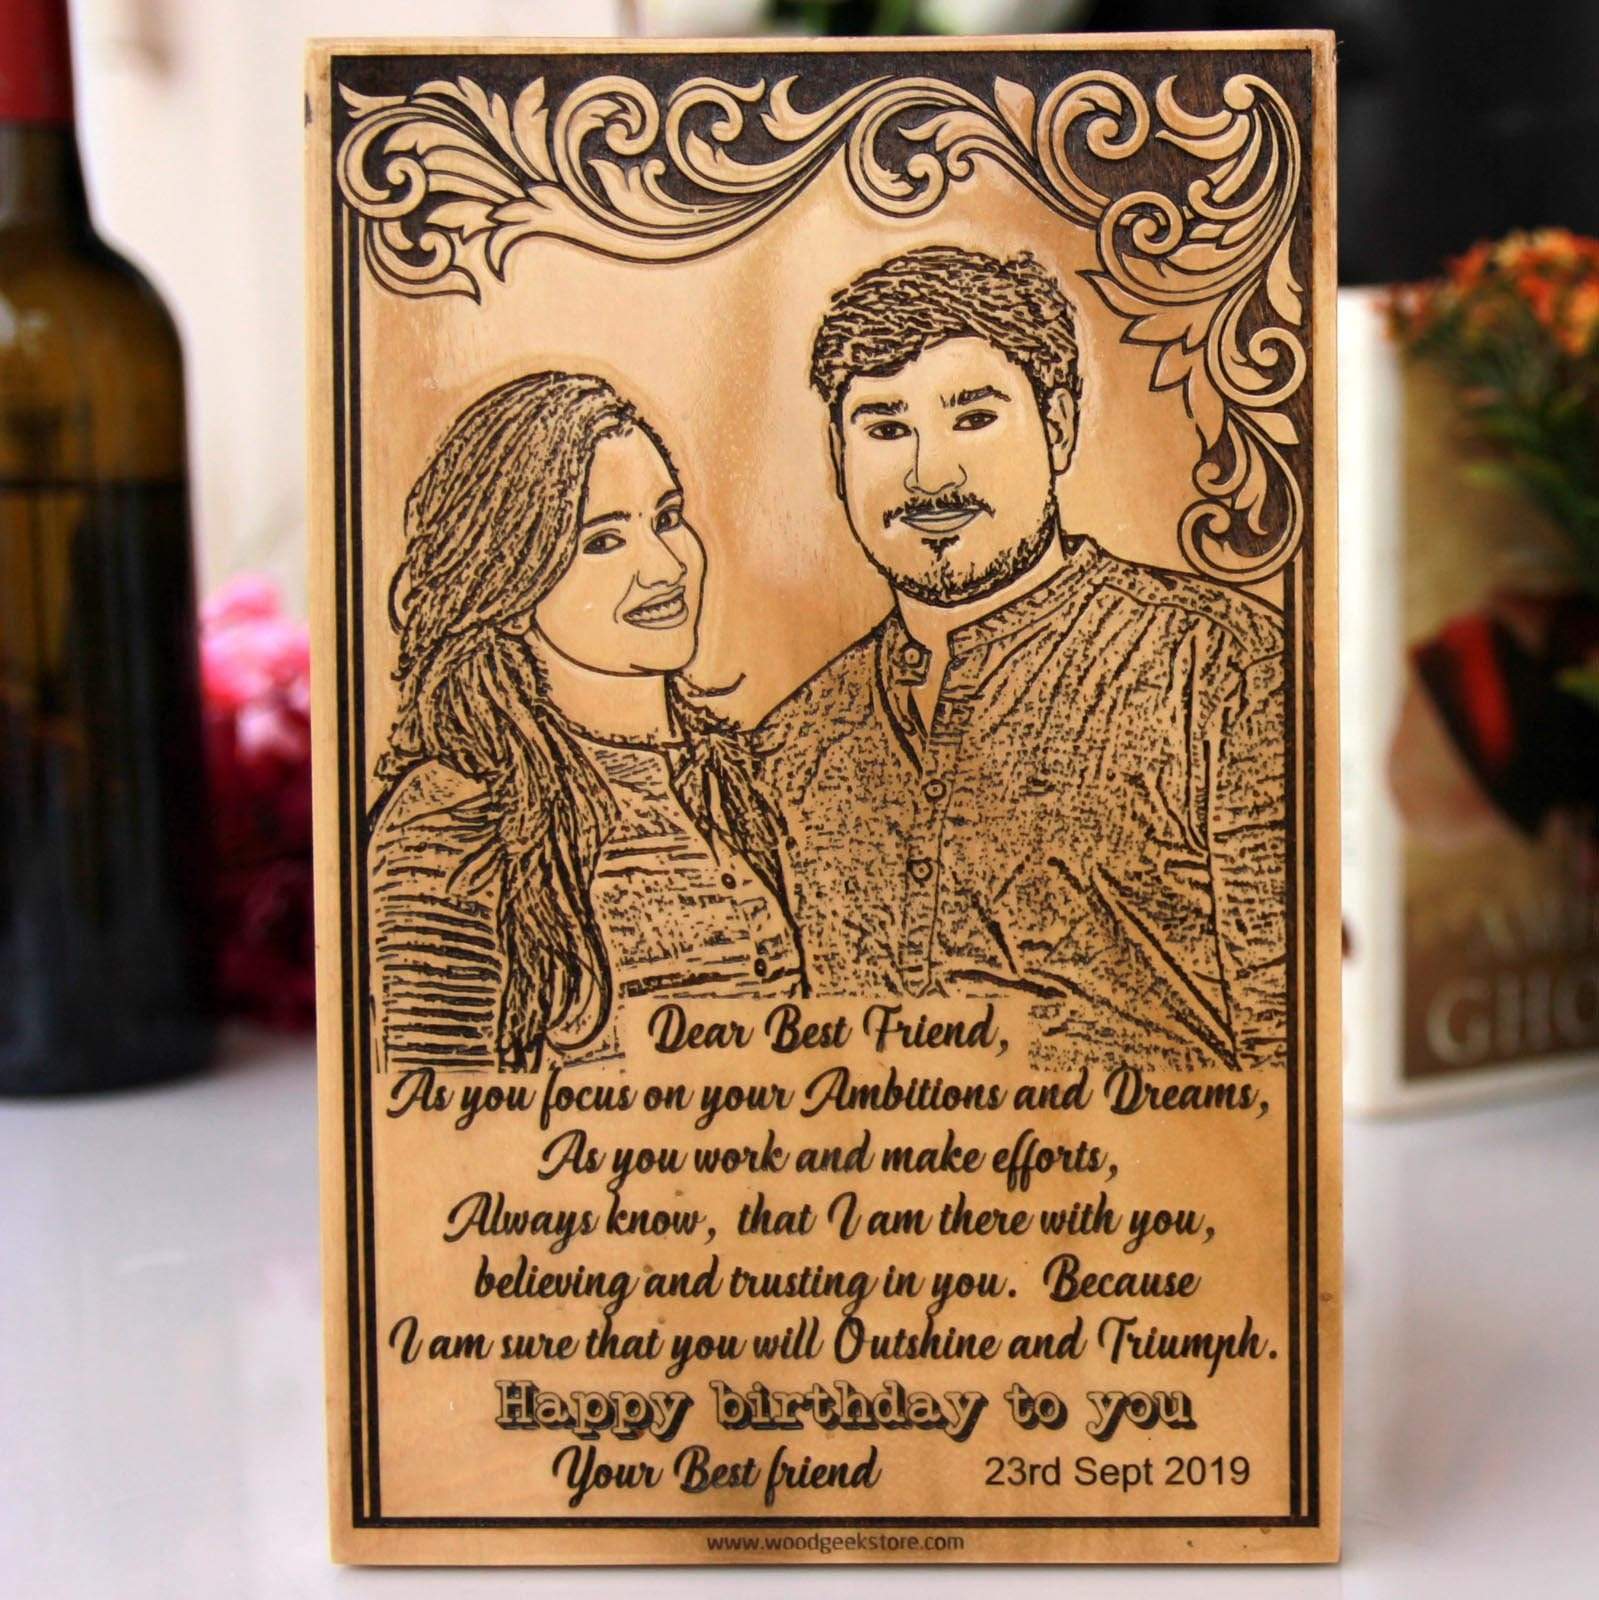 Dear Best Friend,
As you focus on your Ambitions and Dreams,
As you work and make efforts,
Always know, that I am there with you,
believing and trusting in you. Because
I am sure that you will Outshine and Triumph.
Happy birthday to you
Your Best friend 23rd Sept 2019
www.woodgeekstore.com